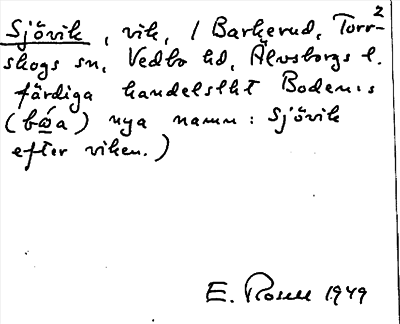 2
Sjövik, vik, / Barkerud, Torr-
skogs sn, Vedbo hd, Älvsborgs l.
färdiga handelslht Bodens
(båa) nya namn: Sjövik
efter viken.)
E. Rosell 1949